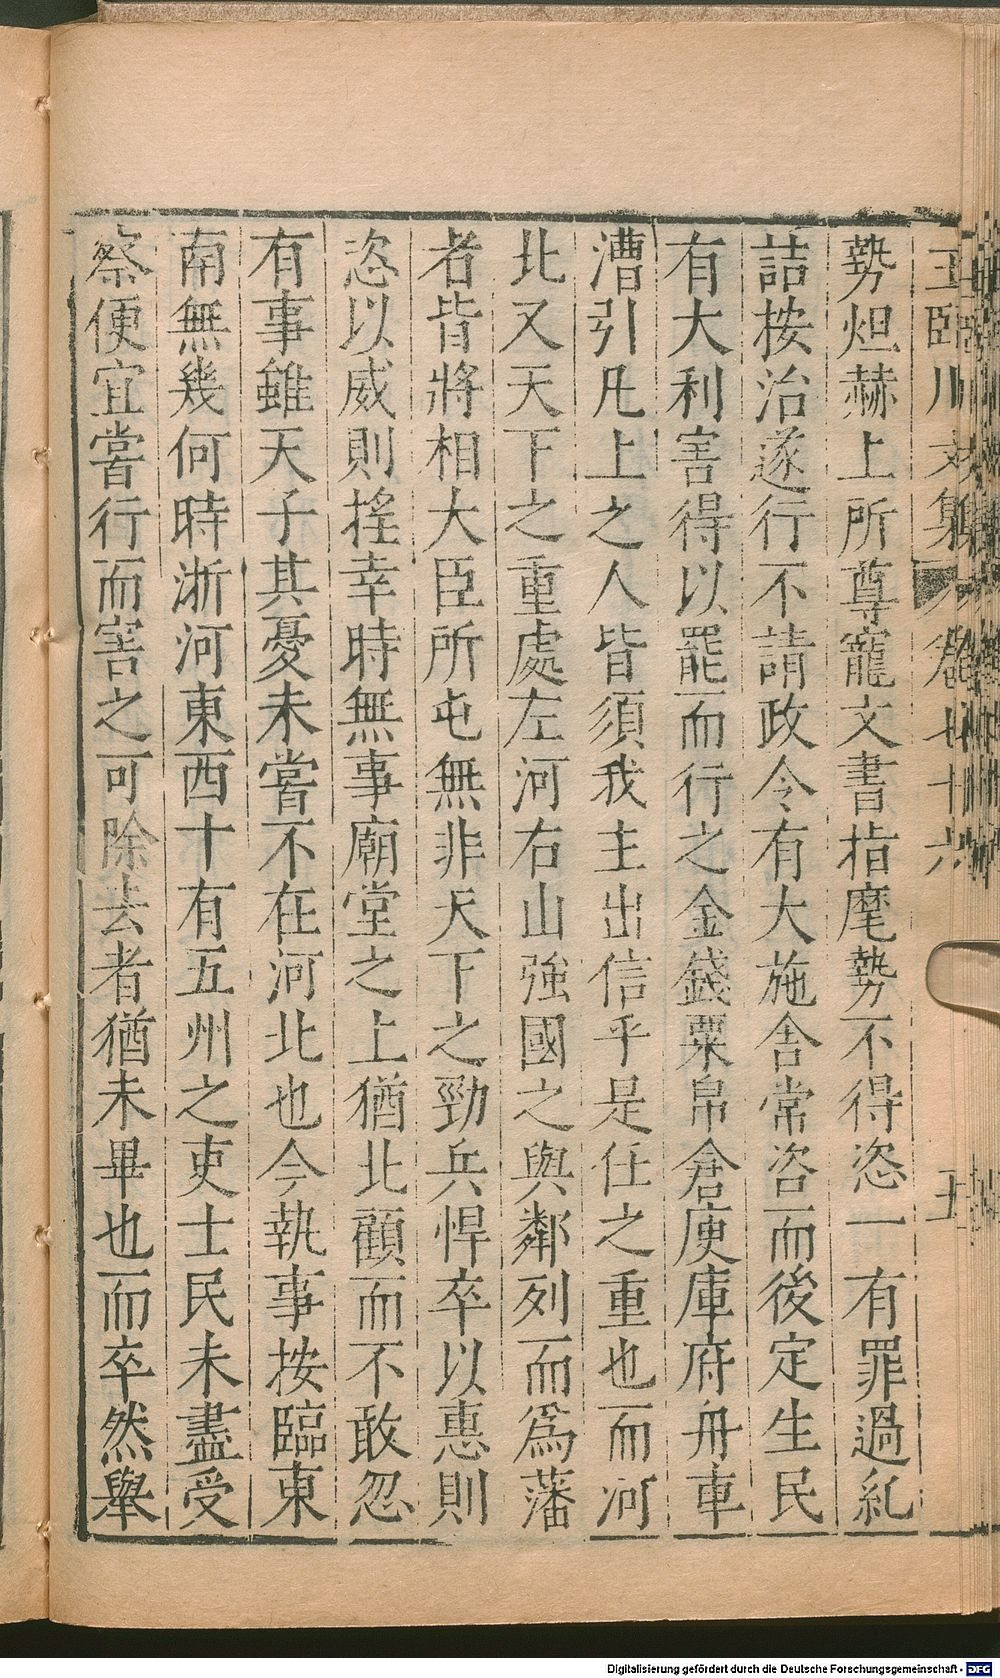 王臨川文集 卷七十六 五
勢炟赫上所尊寵文書指麾勢不得恣一有罪過糺
詰按治遂行不請政令有大施舍常咨而後定生民
有大利害得以罷而行之金錢粟帛倉庾庫府舟車
漕引凡上之人皆須我主出信乎是任之重也而河
北又天下之重處左河右山強國之與鄰列而爲藩
者皆將相大臣所屯無非天下之勁兵悍卒以惠則
恣以威則搖幸時無事廟堂之上猶北顧而不敢忽
有事雖天子其憂未嘗不在河北也今執事按臨東
南無幾何時浙河東西十有五州之吏士民未盡受
察便宜當行而害之可除去者猶未畢也而卒然舉
Digitalisierung gefördert durch die Deutsche Forschungsgemeinschaft - DFG